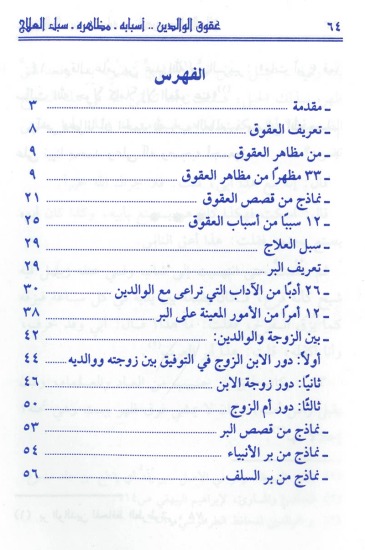 ٦٤ عقوق الوالدين .. أسبابه . مظاهره . سبل العلاج
الفهرس
ـ مقدمة ٣
ـ تعريف العقوق ٨
ـ من مظاهر العقوق ٩
ـ ٣٣ مظهرًا من مظاهر العقوق ٩
ـ نماذج من قصص العقوق ٢١
ـ ١٢ سببًا من أسباب العقوق ٢٥
ـ سبل العلاج ٢٩
ـ تعريف البر ٢٩
ـ ٢٦ أدبًا من الآداب التي تراعى مع الوالدين ٣٠
ـ ١٢ أمرًا من الأمور المعينة على البر ٣٨
ـ بين الزوجة والوالدين: ٤٢
أولاً: دور الابن الزوج في التوفيق بين زوجته ووالديه ٤٤
ثانيًا: دور زوجة الابن ٤٦
ثالثًا: دور أم الزوج ٥٠
ـ نماذج من قصص البر ٥٣
ـ نماذج من بر الأنبياء ٥٤
ـ نماذج من بر السلف. ٥٦